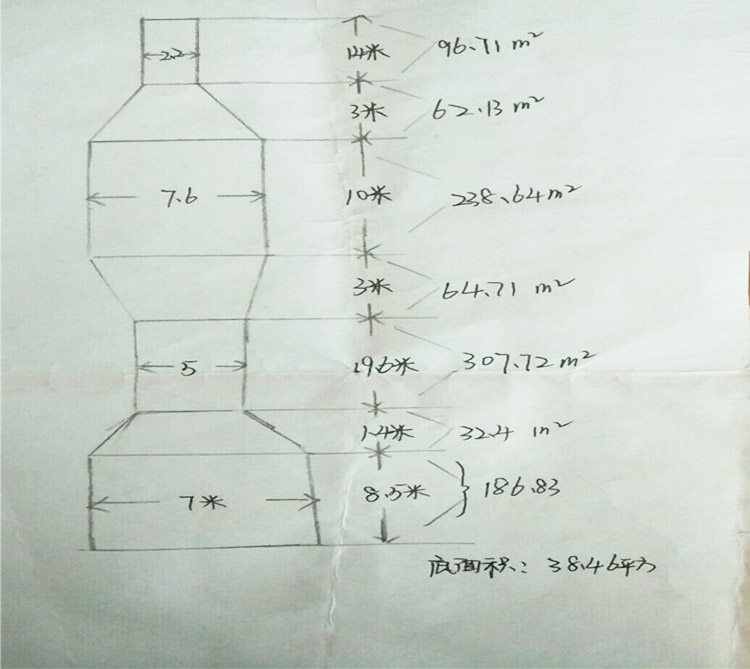 2.2 14米 96.71 m²
3米 62.13 m²
7.6 10米 238.64 m²
3米 64.71 m²
5 19.6米 307.72 m²
1.4米 32.4 m²
7米 8.5米 186.83
底面积: 38.46平方